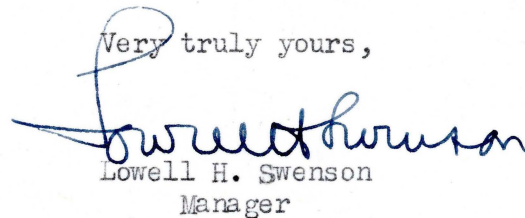 Very truly yours,
Lowell H Swenson
Lowell H. Swenson
Manager